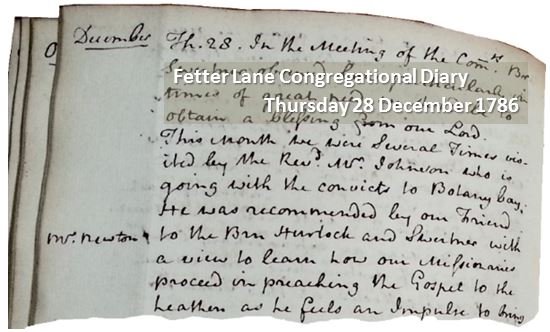 December
Th. 28. In the Meeting of the Com.rs Br.
Fetter Lane Congregational Diary
Thursday 28 December 1786
times of great
to
obtain a blessing from our Lord.
This month we were Several Times vis-
ited by the Revd. Mr. Johnson who is
going with the convicts to Botany bay.
He was recommended by our Friend
Mr. Newton
to the Brn Hurlock and Sweitner with
a view to learn how our Missionaries
proceed in preaching the Gospel to the
heathen as he feels an Impulse to bring